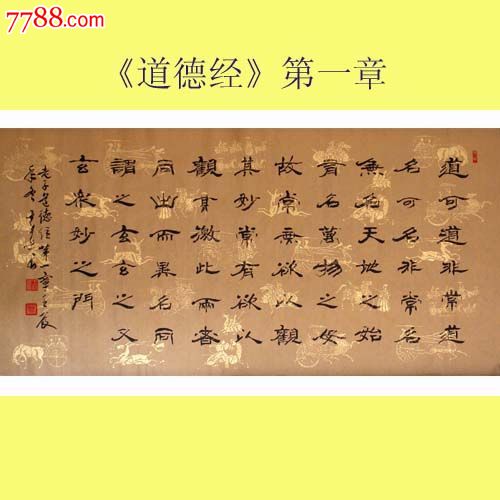 7788.com
《道德经》第一章
道可道非常道
名可名非常名
無名天地之始
有名萬物之母
故常無欲以觀
其妙常有欲以
觀其徼此兩者
同出而異名同
謂之玄玄之又
玄眾妙之門
老子道德經第一章壬辰